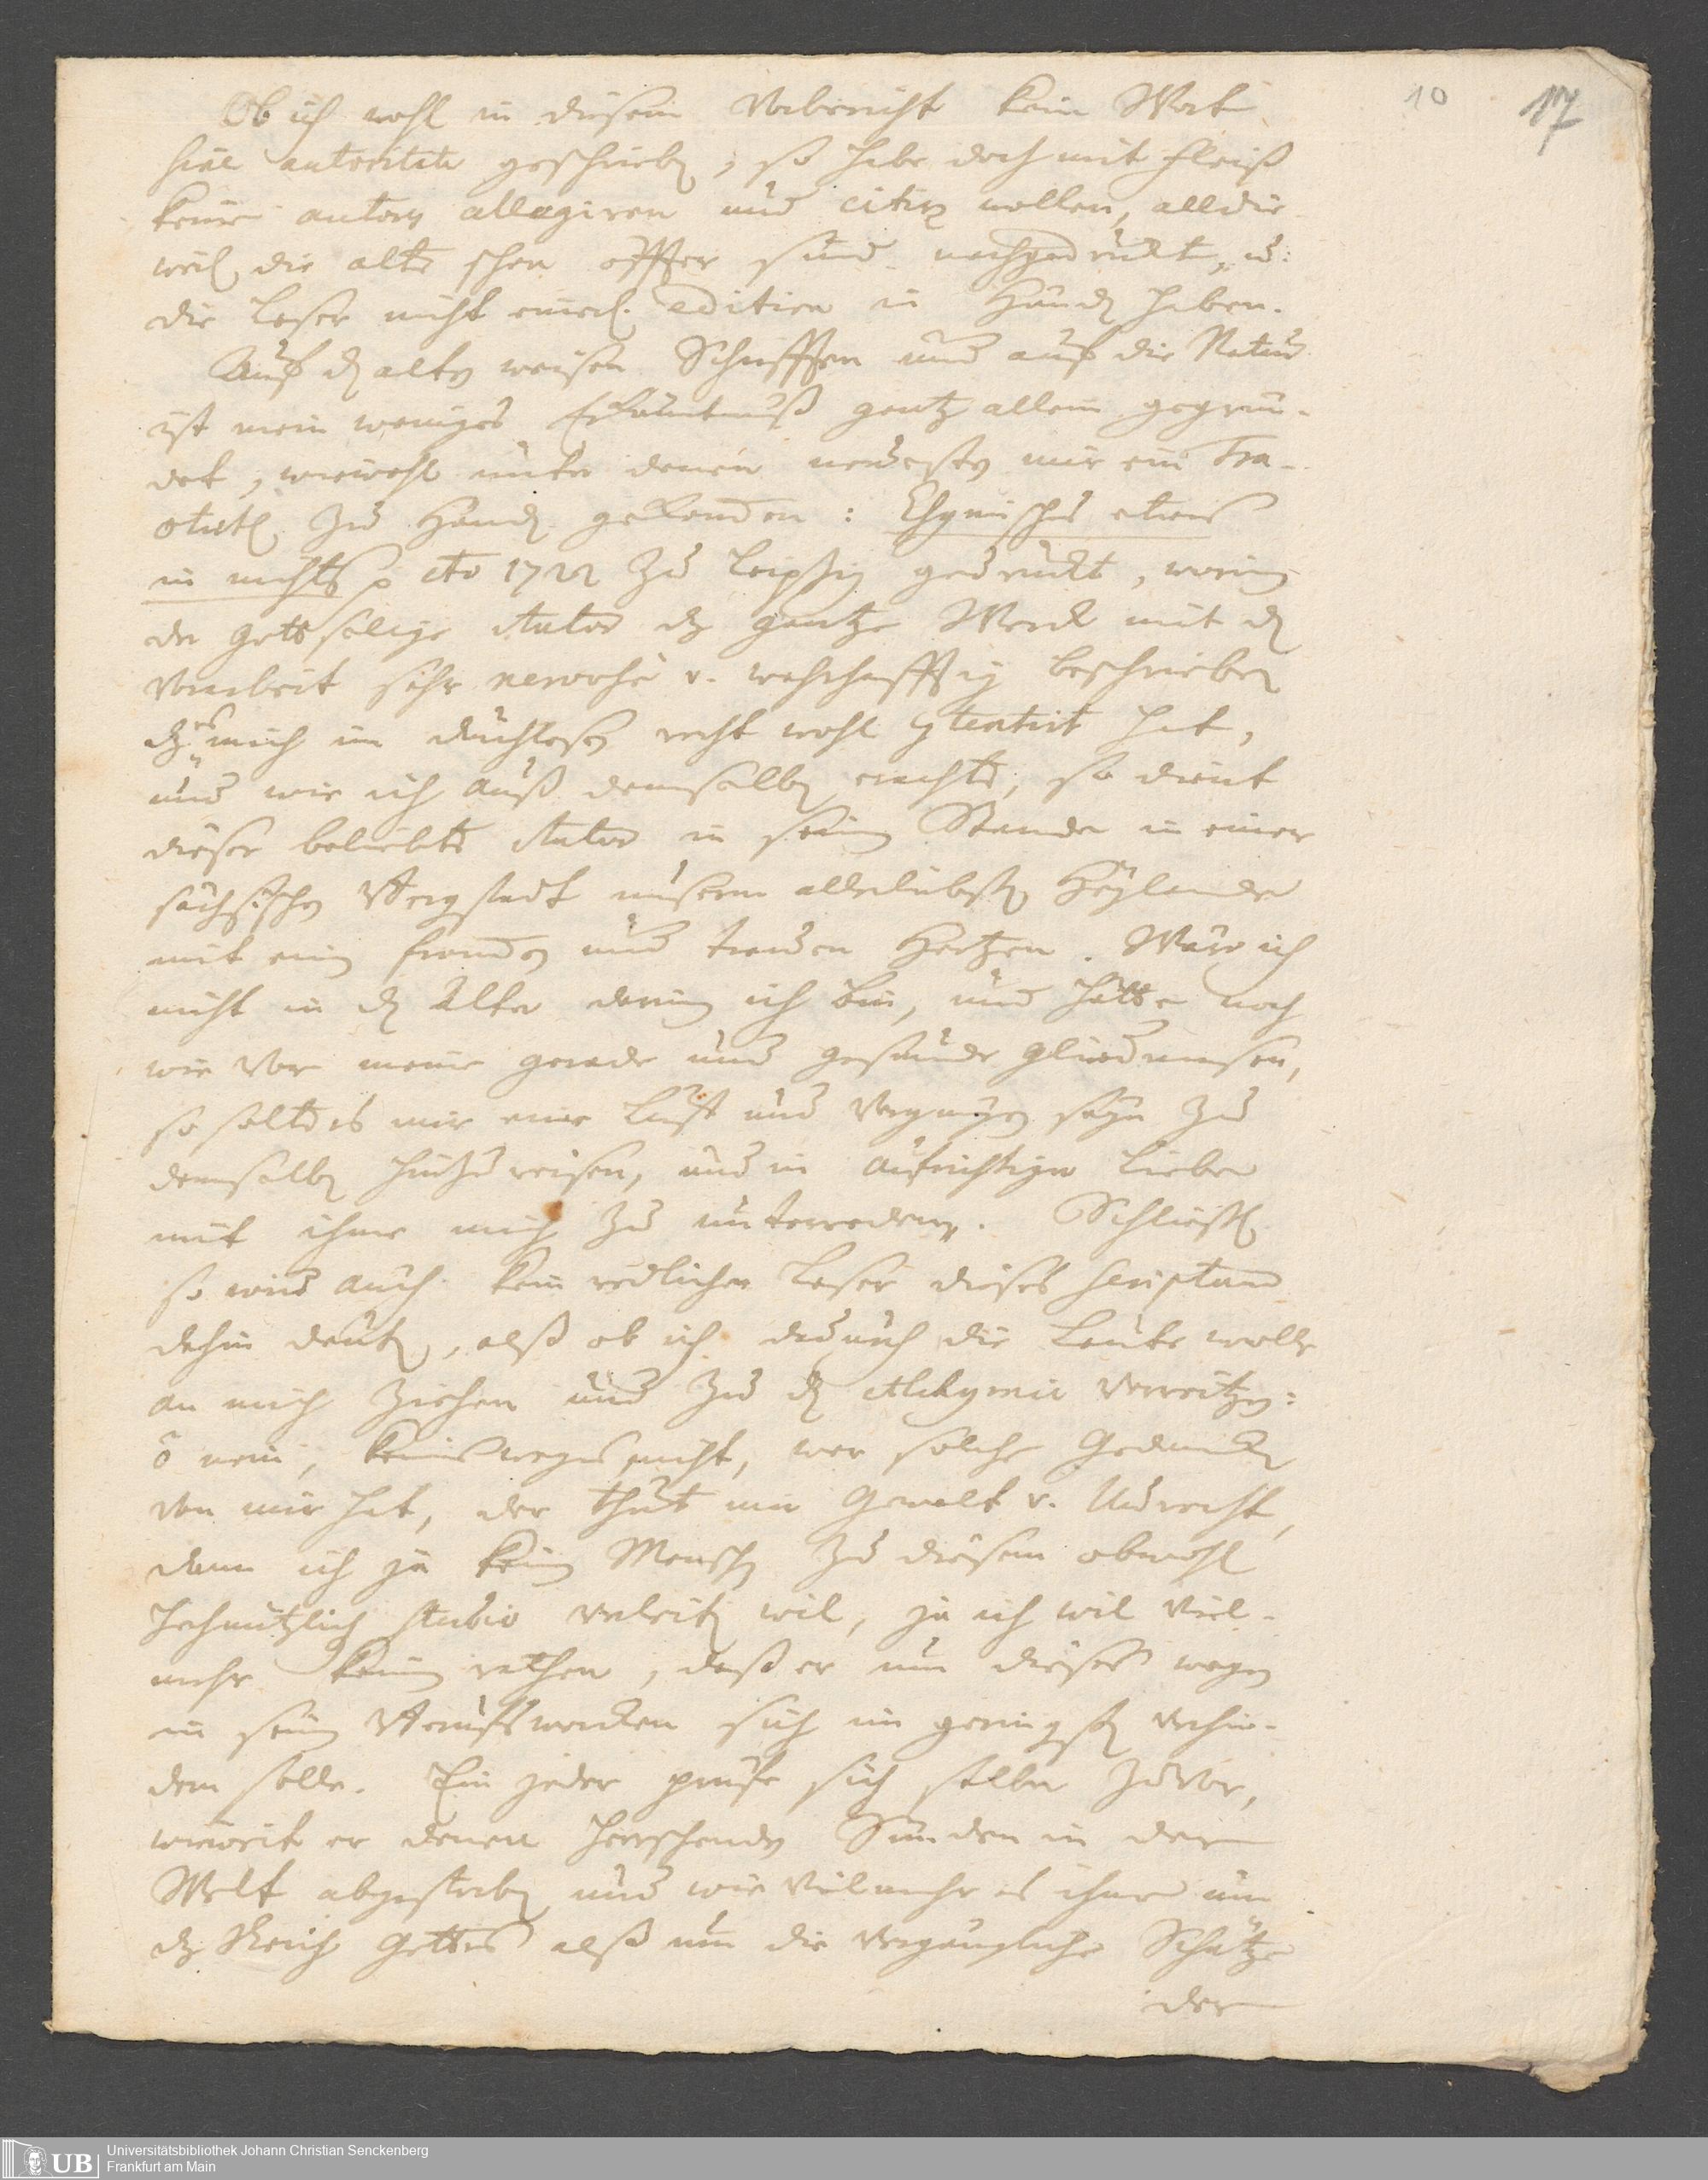 10
17
Ob ich wohl in diesem Vorbericht kein Wort
sine autoritate geschrieben, so habe doch mit fleiß
keine autores allegiren und citiren wollen, alldie
weil die alte schon öffter sind nachgedruckt, u:
die Leser nicht einerl. edition in Händen haben.
Auf der alten weisen Schrifften und auf die Natur
ist mein weniges Erkäntnuß gantz allein gegrün-
det, wiewohl unter denen neuesten mir ein Tra-
ctätl. zu Handen gekommen: Chymisches etwas
in nichts Ao 1722 zu Leipzig gedruckt, worin
der gottselige Autor das gantze Werck mit der
Vorarbeit sehr nervose v. wahrhafftig beschrieben
daß es mich im durchlesen recht wohl contentirt hat,
und wie ich auß demselben erachte, so dient
dieser beliebte Autor in seinem Stande in einer
sächsischen Bergstadt unserm allerliebsten Heylande
mit einem frommen und treuen Hertzen. Wäre ich
nicht in dem Alter darin ich bin, und hätte noch
wie vor meine gerade und gesunde gliedmasen,
so solte es mir eine Lust und Vergnügen seyn zu
demselben hinzureisen, und in aufrichtiger Liebe
mit ihme mich zu unterreden. Schließl.
so wird auch kein redlicher Leser dieses scriptum
dahin deuten, alß ob ich dadurch die Leute wolle
an mich ziehen und zu der Alchymie verreitzen:
ô nein, keineswegs nicht, wer solche Gedancken
von mir hat, der thut mir Gewalt v. Unrecht,
dann ich ja keinen Menschen zu diesem obwohl
hochnützlich studio verleiten wil, ja ich wil viel-
mehr keinem rathen, daß er um dieses wegen
in seinen Beruffswercken sich im geringsten verhin-
dern solle. Ein jeder prüfe sich selber zuvor,
wieweit er denen herrschenden Sünden in der
Welt abgestorben und wie viel mehr es ihme um
das Reich Gottes alß um die vergängliche Schätze
der
UB
Universitätsbibliothek Johann Christian Senckenberg
Frankfurt am Main